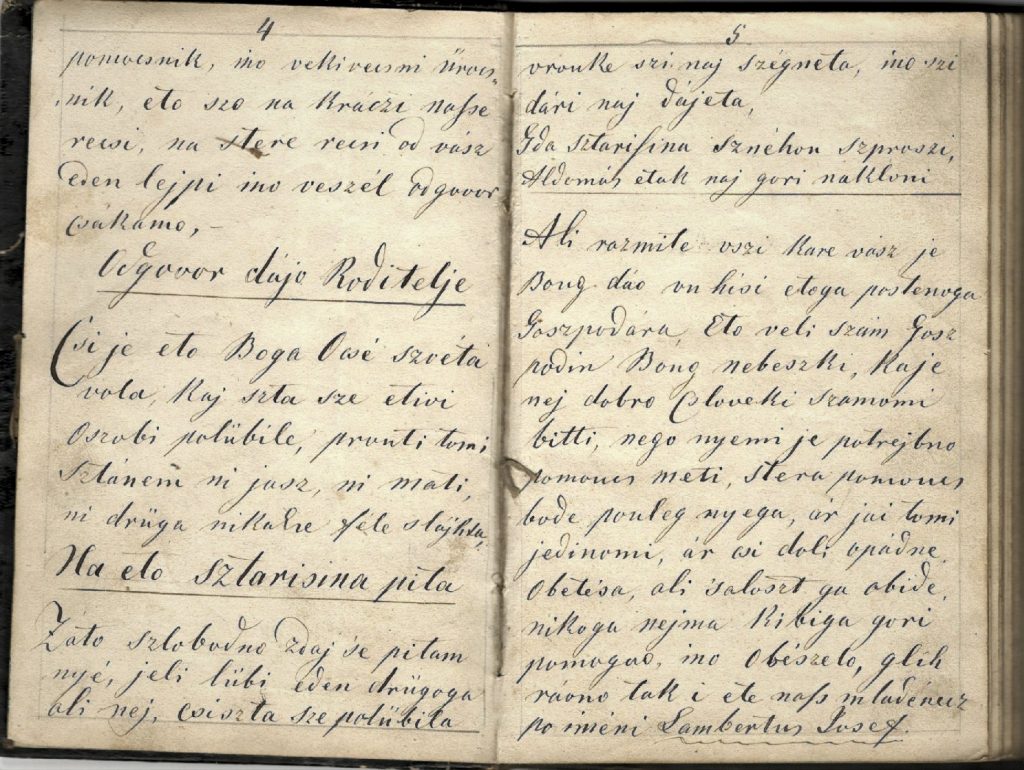 4
pomocsnik, ino vekivecsni Örocs„
nik, eto szo na kráczi nasse
recsi, na stere recsi od vász
eden lejpi ino veszél odgovor
csákamo,-
Odgovor dájo Roditelje
Csi je eto Boga Ocsé szvéta
vola, kaj szta sze etivi
Oszobi polübile, prouti tomi
sztánem ni jasz, ni mati,
ni drüga nikakse féle slájhta,
Na eto sztarisina pita
Záto szlobodno zdaj se pitam
nyé, jeli lübi eden drügoga
ali nej, csiszta sze polübila
5
vrouke szi naj szégneta, ino szi
dári naj dájeta,
Gda sztarisina sznéhou szproszi,
Áldomás etak naj gori nakloni
Ali razmite vszi kare vász je
Boug dáo vu hisi etoga postenoga
Goszpodára, Eto veli szám Gosz
podin Boug nebeszki, kaje
nej dobro Csloveki szamomi
bitti, nego nyemi je potrejbno
pomoucs meti, stera pomoucs
bode pouleg nyega, ár jai tomi
jedinomi, ár csi doli opádne,
Obetésa, ali saloszt ga obide,
nikoga nejma kibiga gori
pomogao, ino Obészelo, glih
ráono tak i ete nass mladénecz
po iméni Lambertus Josef.